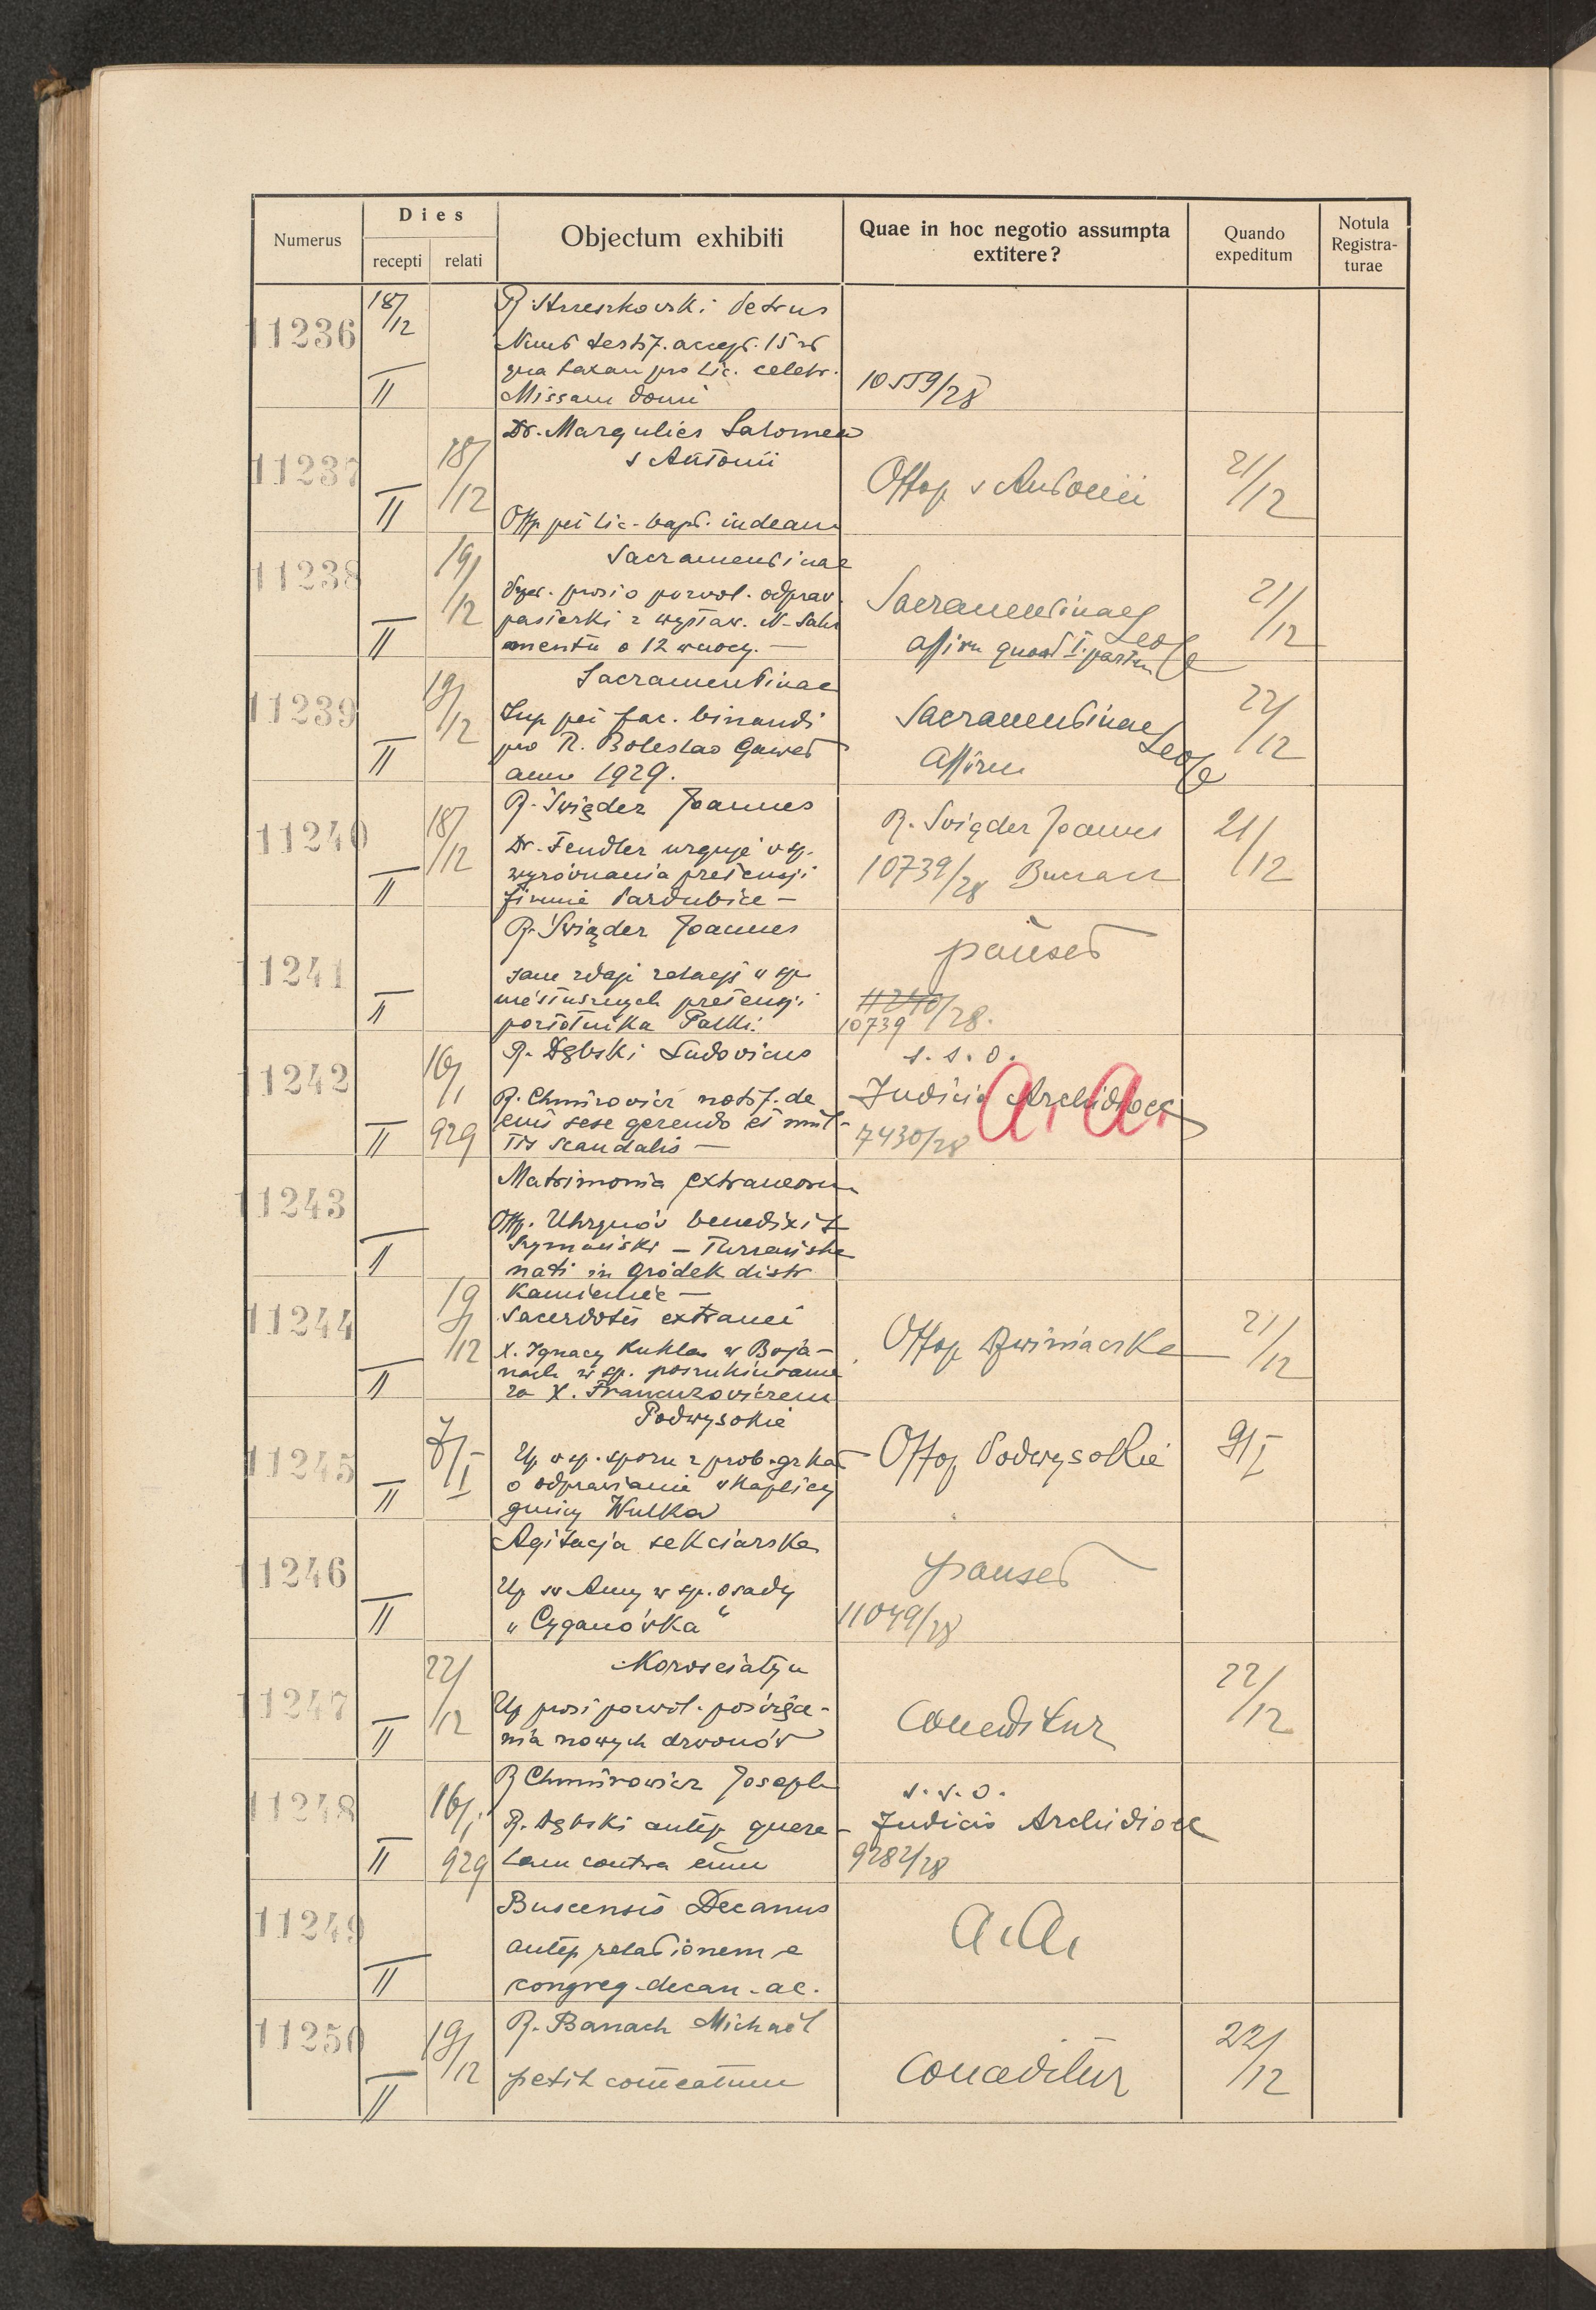 Numerus
Dies
recepti
relati
Objectum exhibiti
Quae in hoc negotio assumpta extitere?
Quando expeditum
Notula Registra-turae
11236
18/12
R. Petrus
testif. accept. 15
qua taxam pro lic. celebr.
Missam domi
II
10559/28
11237
18/12
Dr. Margulies Salomea
s Antonii
Offp pet lic. bapt. iudeam
II
Offop s Antonii
21/12
11238
19/12
Sacramentinae
prosi o pozwol. odpraw.
pasterki z wystaw. N. Sakr
amentu o 12 w nocy. —
II
Sacramentinae Leop
affirm quoad I. partem
21/12
11239
19/12
Sacramentinae
Sup pet fac. binandi
pro R. Boleslao Gaweł
anno 1929.
II
Sacramentinae Leop
Affirm
22/12
11240
18/12
R. Świąder Joannes
Dr. Fendler urguje w sp.
wyrównania pretensji
firmie Pardubice —
II
R. Świąder Joannes
10739/28 Buczacz
21/12
11241
R. Świąder Joannes
sam zdaje relację w sp
niesłusznych pretensji
II
pauset
11240
10739/28.
11242
16/1
929
R. Dębski Ludovicus
R. Chmurowicz notif. de
eius sese gerendo et mul-
tis scandalis —
II
s. s. o.
Judicio Archidioec
7430/28
A. A.
11243
Matrimonia extraneorum
Offp. Uhrynów benedixit
Szymański —
nati in Gródek distr
Kamieniec —
II
11244
19/12
Sacerdotes extranei
X. Ignacy Kuhla w Boja-
nach w sp. poszukiwania
za X. Francuzowiczem
II
Offop Dzwiniaczka
21/12
11245
7/I
Podwysokie
Up w sp. sporu z prob. gr kat
o odprawianie w kaplicy
gminy Wulka
II
Offop Podwysokie
9/I
11246
Agitacja sekciarska
Up sw Anny w sp. osady
„Cyganówka“
II
pauset
11049/28
11247
22/12
Korosciatyn
Up prosi pozwol. poświęce-
nia nowych dzwonów
II
Conceditur
22/12
11248
16/1
929
R Chmurowicz Joseph
R. Dębski antep quere-
lam contra eum
II
s. s. o.
Judicio Archidioec
9282/28
11249
Buscensis Decanus
antep relationem e
congreg. decan. ac.
II
A. A.
11250
19/12
R. Banach Michaël
petit comeatum
II
Conceditur
22/12